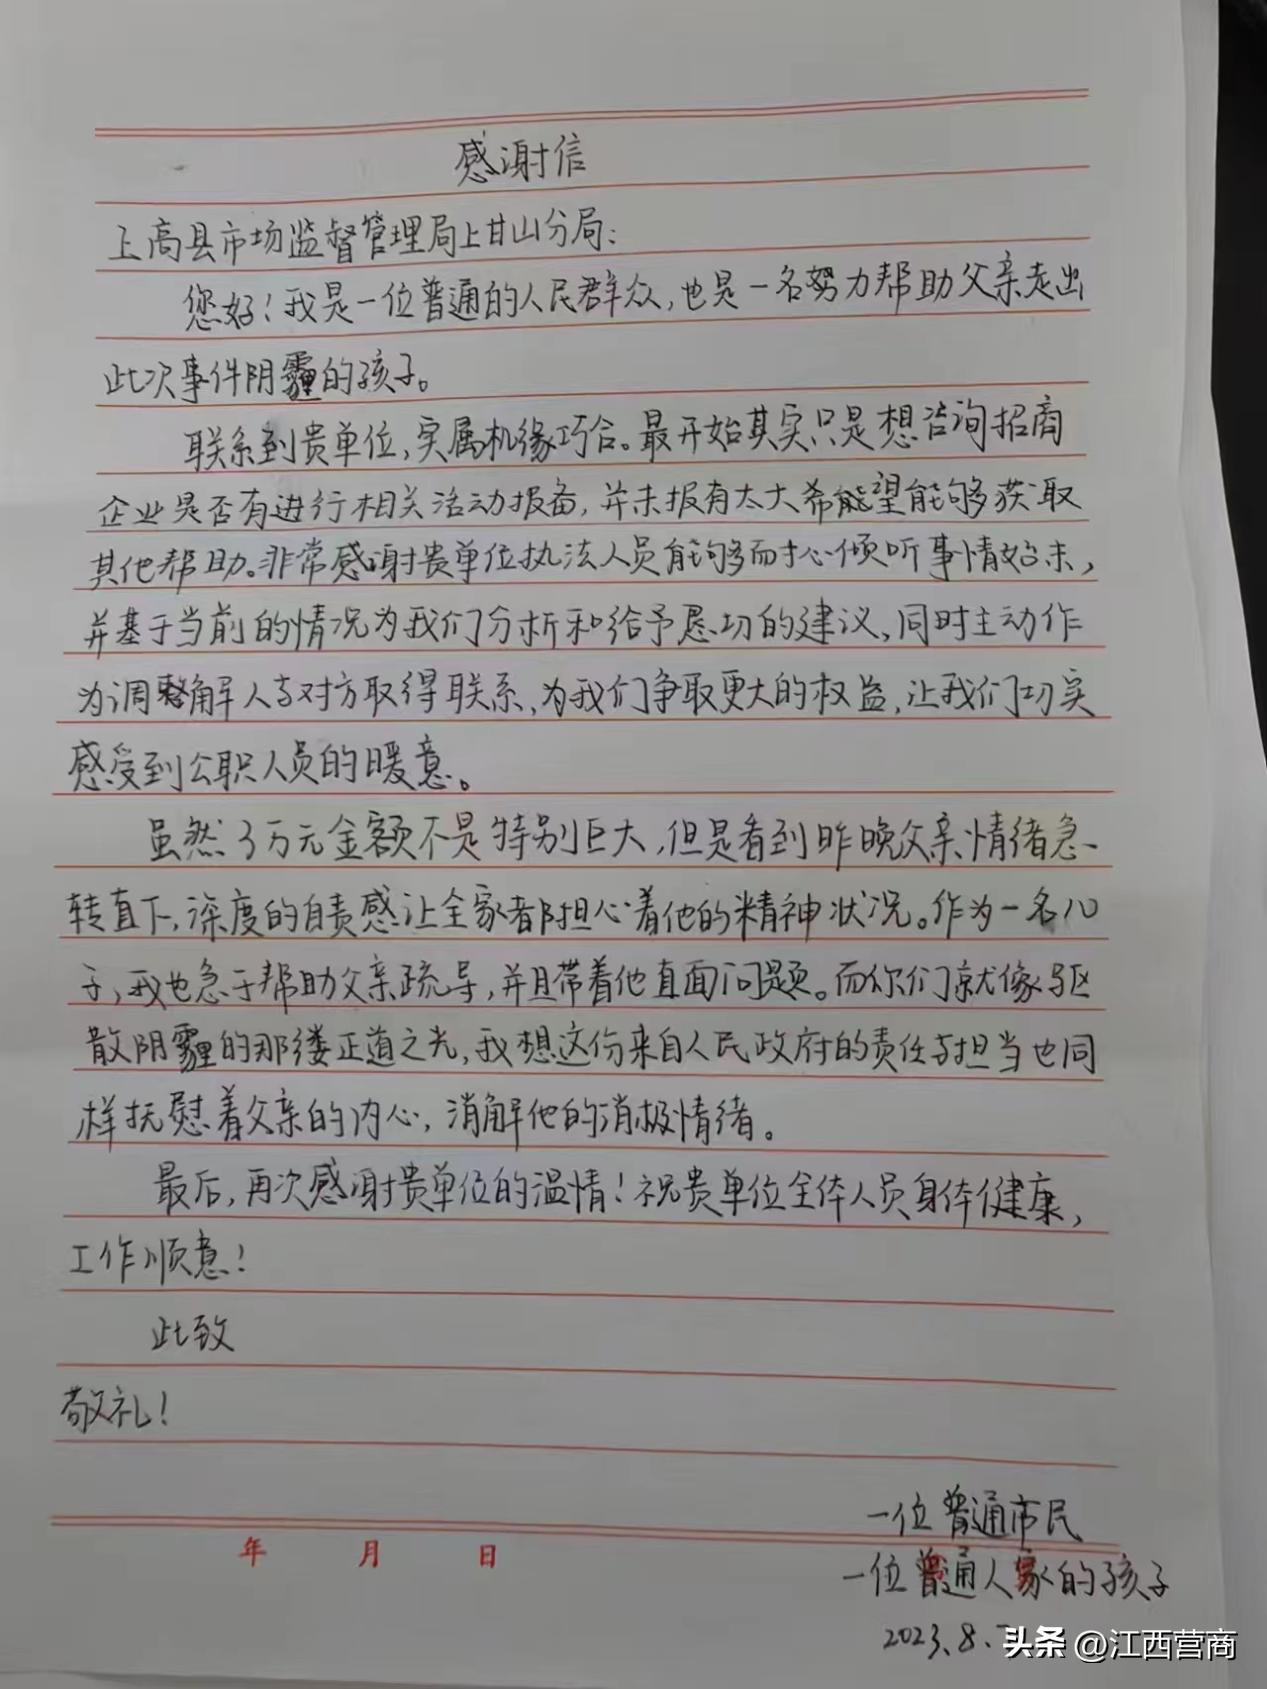 感谢信
上高县市场监督管理局上甘山分局：
您好！我是一位普通的人民群众，也是一名努力帮助父亲走出
此次事件阴霾的孩子。
联系到贵单位，实属机缘巧合。最开始其实只是想咨询招商
企业是否有进行相关活动报备，并未报有太大希望能够获取
其他帮助。非常感谢贵单位执法人员能够耐心倾听事情始末，
并基于当前的情况为我们分析和给予恳切的建议，同时主动作
为调解人与对方取得联系，为我们争取更大的权益，让我们切实
感受到公职人员的暖意。
虽然3万元金额不是特别巨大，但是看到昨晚父亲情绪急
转直下，深度的自责感让全家都担心着他的精神状况。作为一名儿
子，我也急于帮助父亲疏导，并且带着他直面问题。而你们就像驱
散阴霾的那缕正道之光，我想这份来自人民政府的责任与担当也同
样抚慰着父亲的内心，消解他的消极情绪。
最后，再次感谢贵单位的温情！祝贵单位全体人员身体健康，
工作顺意！
此致
敬礼！
一位普通市民
年 月 日
一位普通人家的孩子
2023.8.
头条 @江西营商